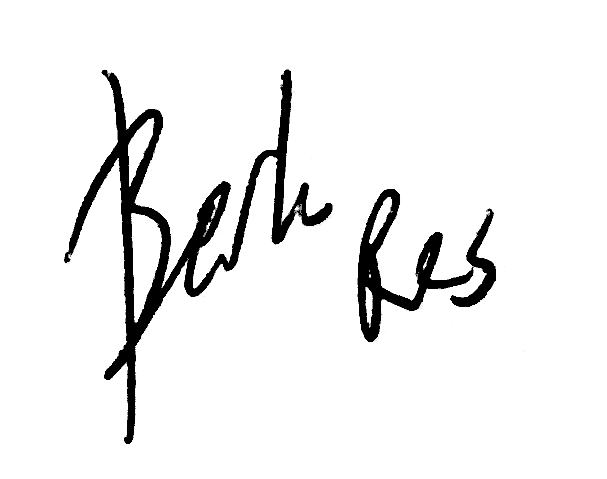 Berk Res